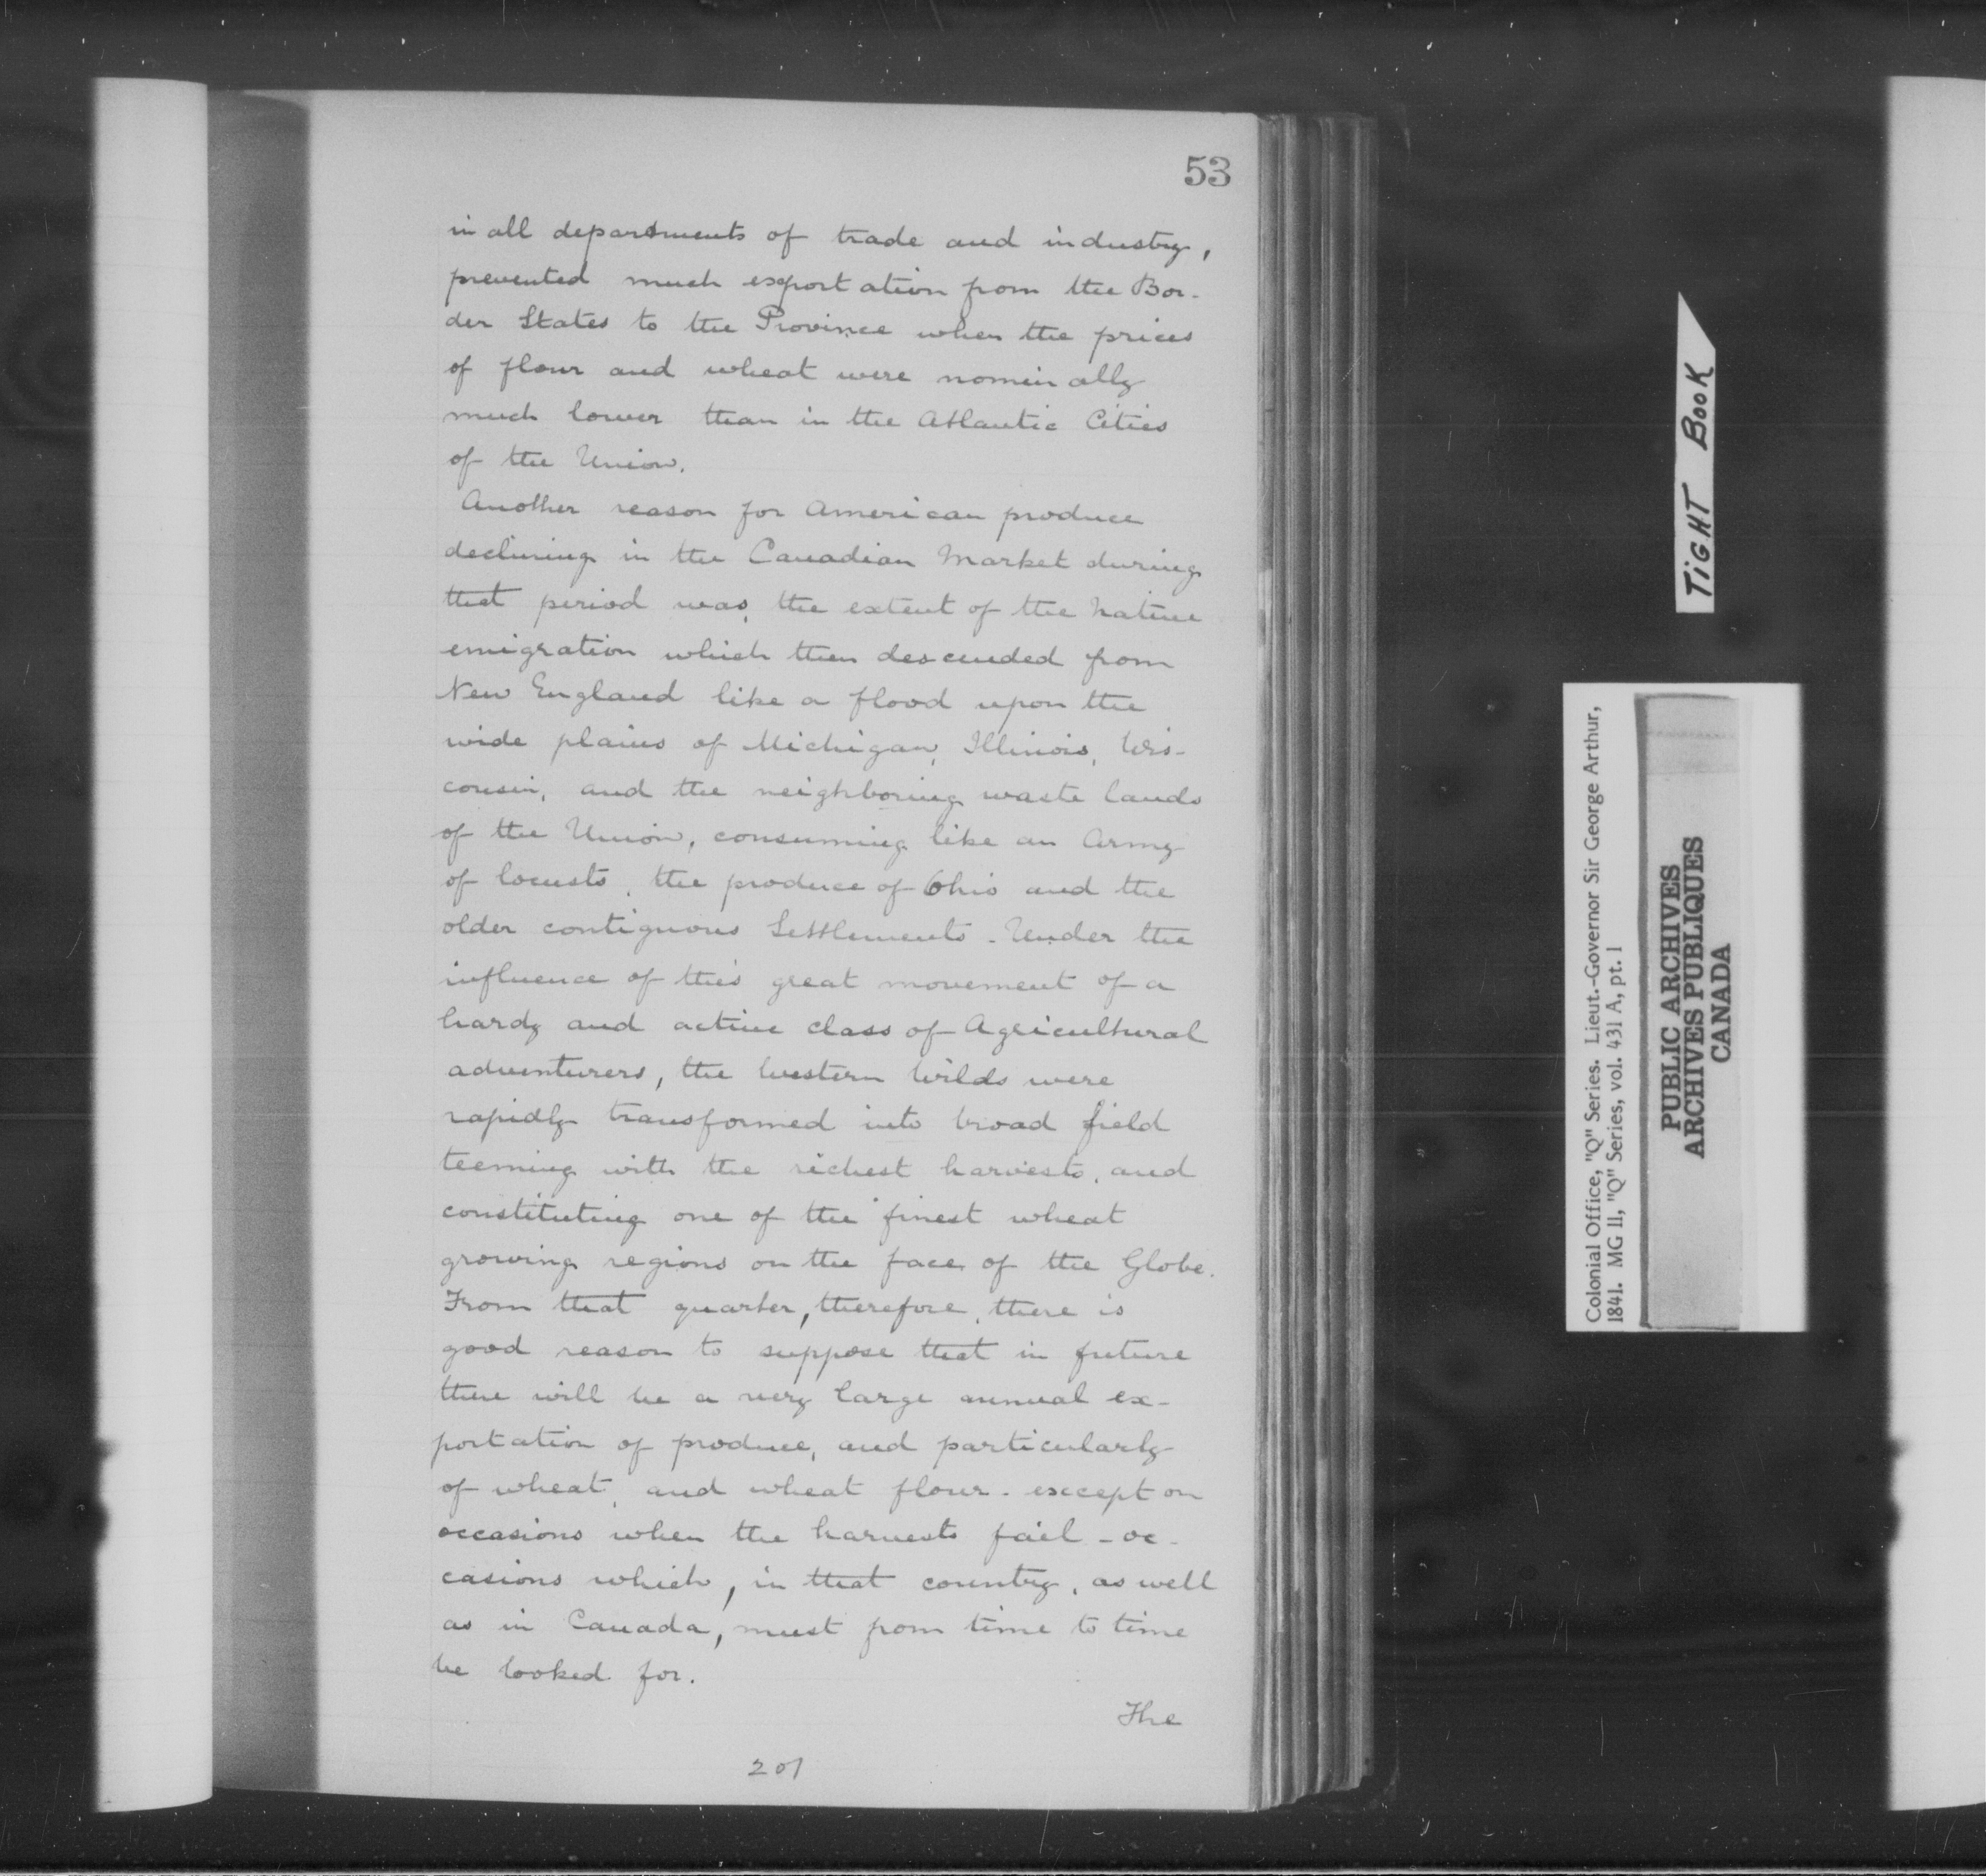 53
in all departments of trade and industry,
prevented much exportation from the Bor-
der States to the Province when the prices
of flour and wheat were nominally
much lower than in the Atlantic Cities
of the Union.
Another reason for American produce
declining in the Canadian Market during
that period was, the extent of the Native
emigration which then descended from
New England like a flood upon the
wide plains of Michigan, Illinois, Wis-
consin, and the neighboring waste lands
of the Union, consuming like an Army
of locusts, the produce of Ohio and the
older contiguous Settlements. Under the
influence of this great movement of a
hardy and active class of Agricultural
adventurers, the Western Wilds were
rapidly transformed into broad field
teeming with the richest harvests, and
constituting one of the finest wheat
growing regions on the face of the Globe.
From that quarter, therefore, there is
good reason to suppose that in future
there will be a very large annual ex-
portation of produce, and particularly
of wheat, and wheat flour - except on
occasions when the harvests fail - oc-
casions which, in that country, as well
as in Canada, must from time to time
be looked for.
The
201
TIGHT BOOK
Colonial Office, "Q" Series. Lieut.-Governor Sir George Arthur,
1841. MG 11, "Q" Series, vol. 431 A, pt. 1
PUBLIC ARCHIVES
ARCHIVES PUBLIQUES
CANADA